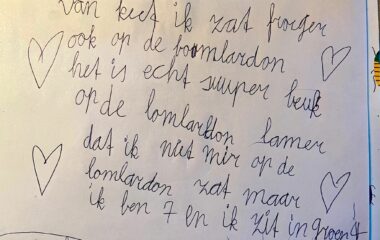 van keet ik zat froger
ook op de boomlardon
het is echt suuper beuk
op de lomlardon lamer
dat ik niet mir op de
lomlardon zat maar
ik ben 7 en ik zit in groep 4